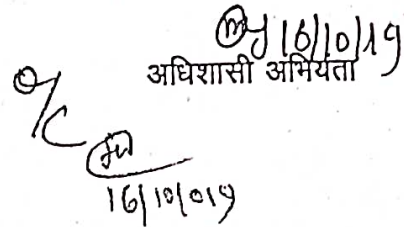 16/10/19
अधिशासी अभियंता
O/C
16/10/019